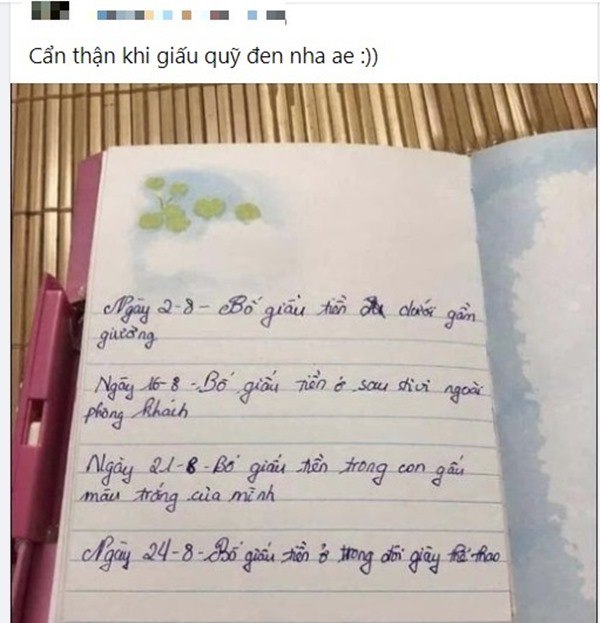 Cẩn thận khi giấu quỹ đen nha ae :))
Ngày 2-8 - Bố giấu tiền dưới gần
giường
Ngày 16-8 - Bố giấu tiền ở sau tivi ngoài
phòng khách
Ngày 21-8 - Bố giấu tiền trong con gấu
màu trắng của mình
Ngày 24-8 - Bố giấu tiền ở trong đôi giày thể thao